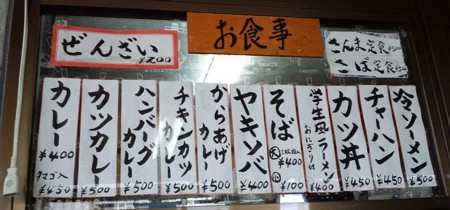 お食事
ぜんざい
¥200
さんま定食
さば定食
冷ソーメン
¥500
チャーハン
¥450
カツ丼
¥450
学生風ラーメン
おにぎり付
¥400
そば
大
¥400
小
¥100
ヤキソバ
¥400
からあげカレー
¥500
チキンカツカレー
¥500
ハンバーグカレー
¥500
カツカレー
¥500
カレー
¥400
タマゴ入
¥450